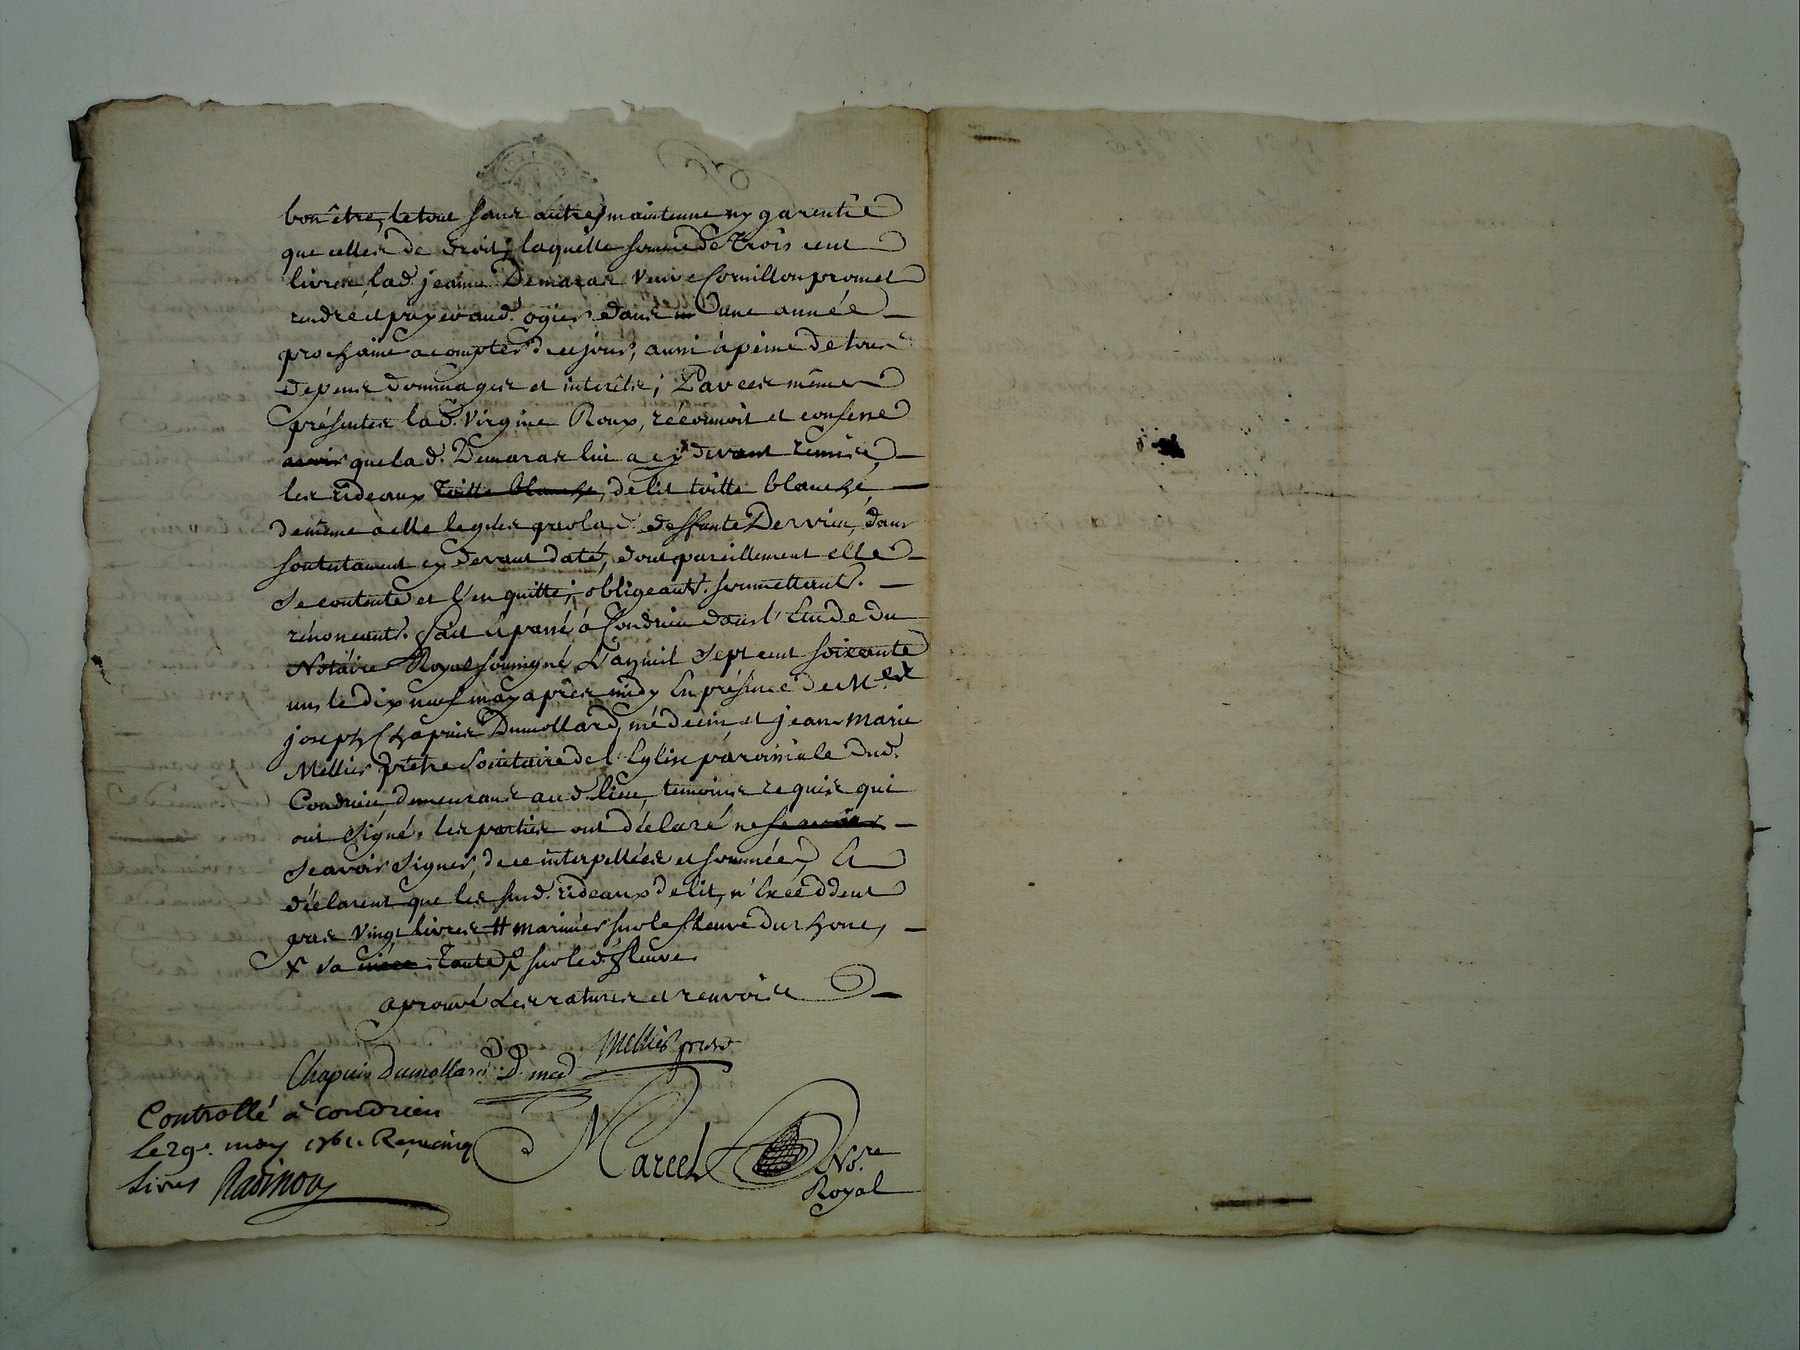 bon être, le tout sans autre maintenue ny garentie
que celles de droit; laquelle somme de trois cent
livres, lad. jeanne Demaras veuve Cornillon promet
rendre et payer aud. ogier dans une année
prochaine a compter de ce jour, aussi à peine de tous
depens dommages et interêts; Par ces mêmes
présentes lad. Virgine Roux, réconnoit et confesse
avoir que lad. Demaras lui a cy devant remis
les rideaux toille blanche, de lit toille blanche,
de même a elle legués par lad. deffunte Dervieu, dans
son testament cy devant daté, dont pareillement elle
se contente et l'en quitte; obligeants. soumettants.
rénonceants. fait et passé à Condrieu dans l'Etude du
Notaire Royal soussigné, L'an mil sept cent soixante
un, le dix neuf may après midy En présence de Mes.
joseph Chapuis Dumollard, médecin, et jean marie
Mellier prêtre Sociétaire de l'Eglise paroissiale dud.
Condrieu demeurans aud. lieu, temoins requis qui
ont signé. les parties ont déclaré ne scavoir
scavoir signer, de ce interpellées et sommées, Et
déclarent que les sud. rideaux de lit, n'Excèddent
pas vingt livres # marinier sur le fleuve du rhone,
x sa niéce tante, sur led. fleuve
aprouvé Les ratures et renvois
Mellier ptre
Chapuis Dumollard D. med
Controllé à Condrieu
Le 29e. may 1761. Reçu cinq
Livres Ravinoy
Marcel Nore.
Royal